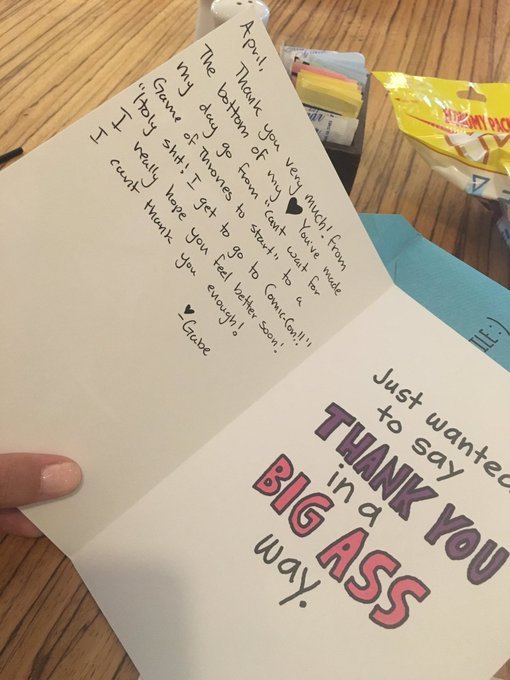 April,
Thank you very much! From
The bottom of my ♥ You've made
my day go from "can't wait for
Game of Thrones to start" to a
"Holy shit! I get to go to Comic-Con!!"
I really hope you feel better soon!
I can't thank you enough!
♥
-Gabe
Just wanted
to say
THANK YOU
in a
BIG ASS
way.
ILE:)